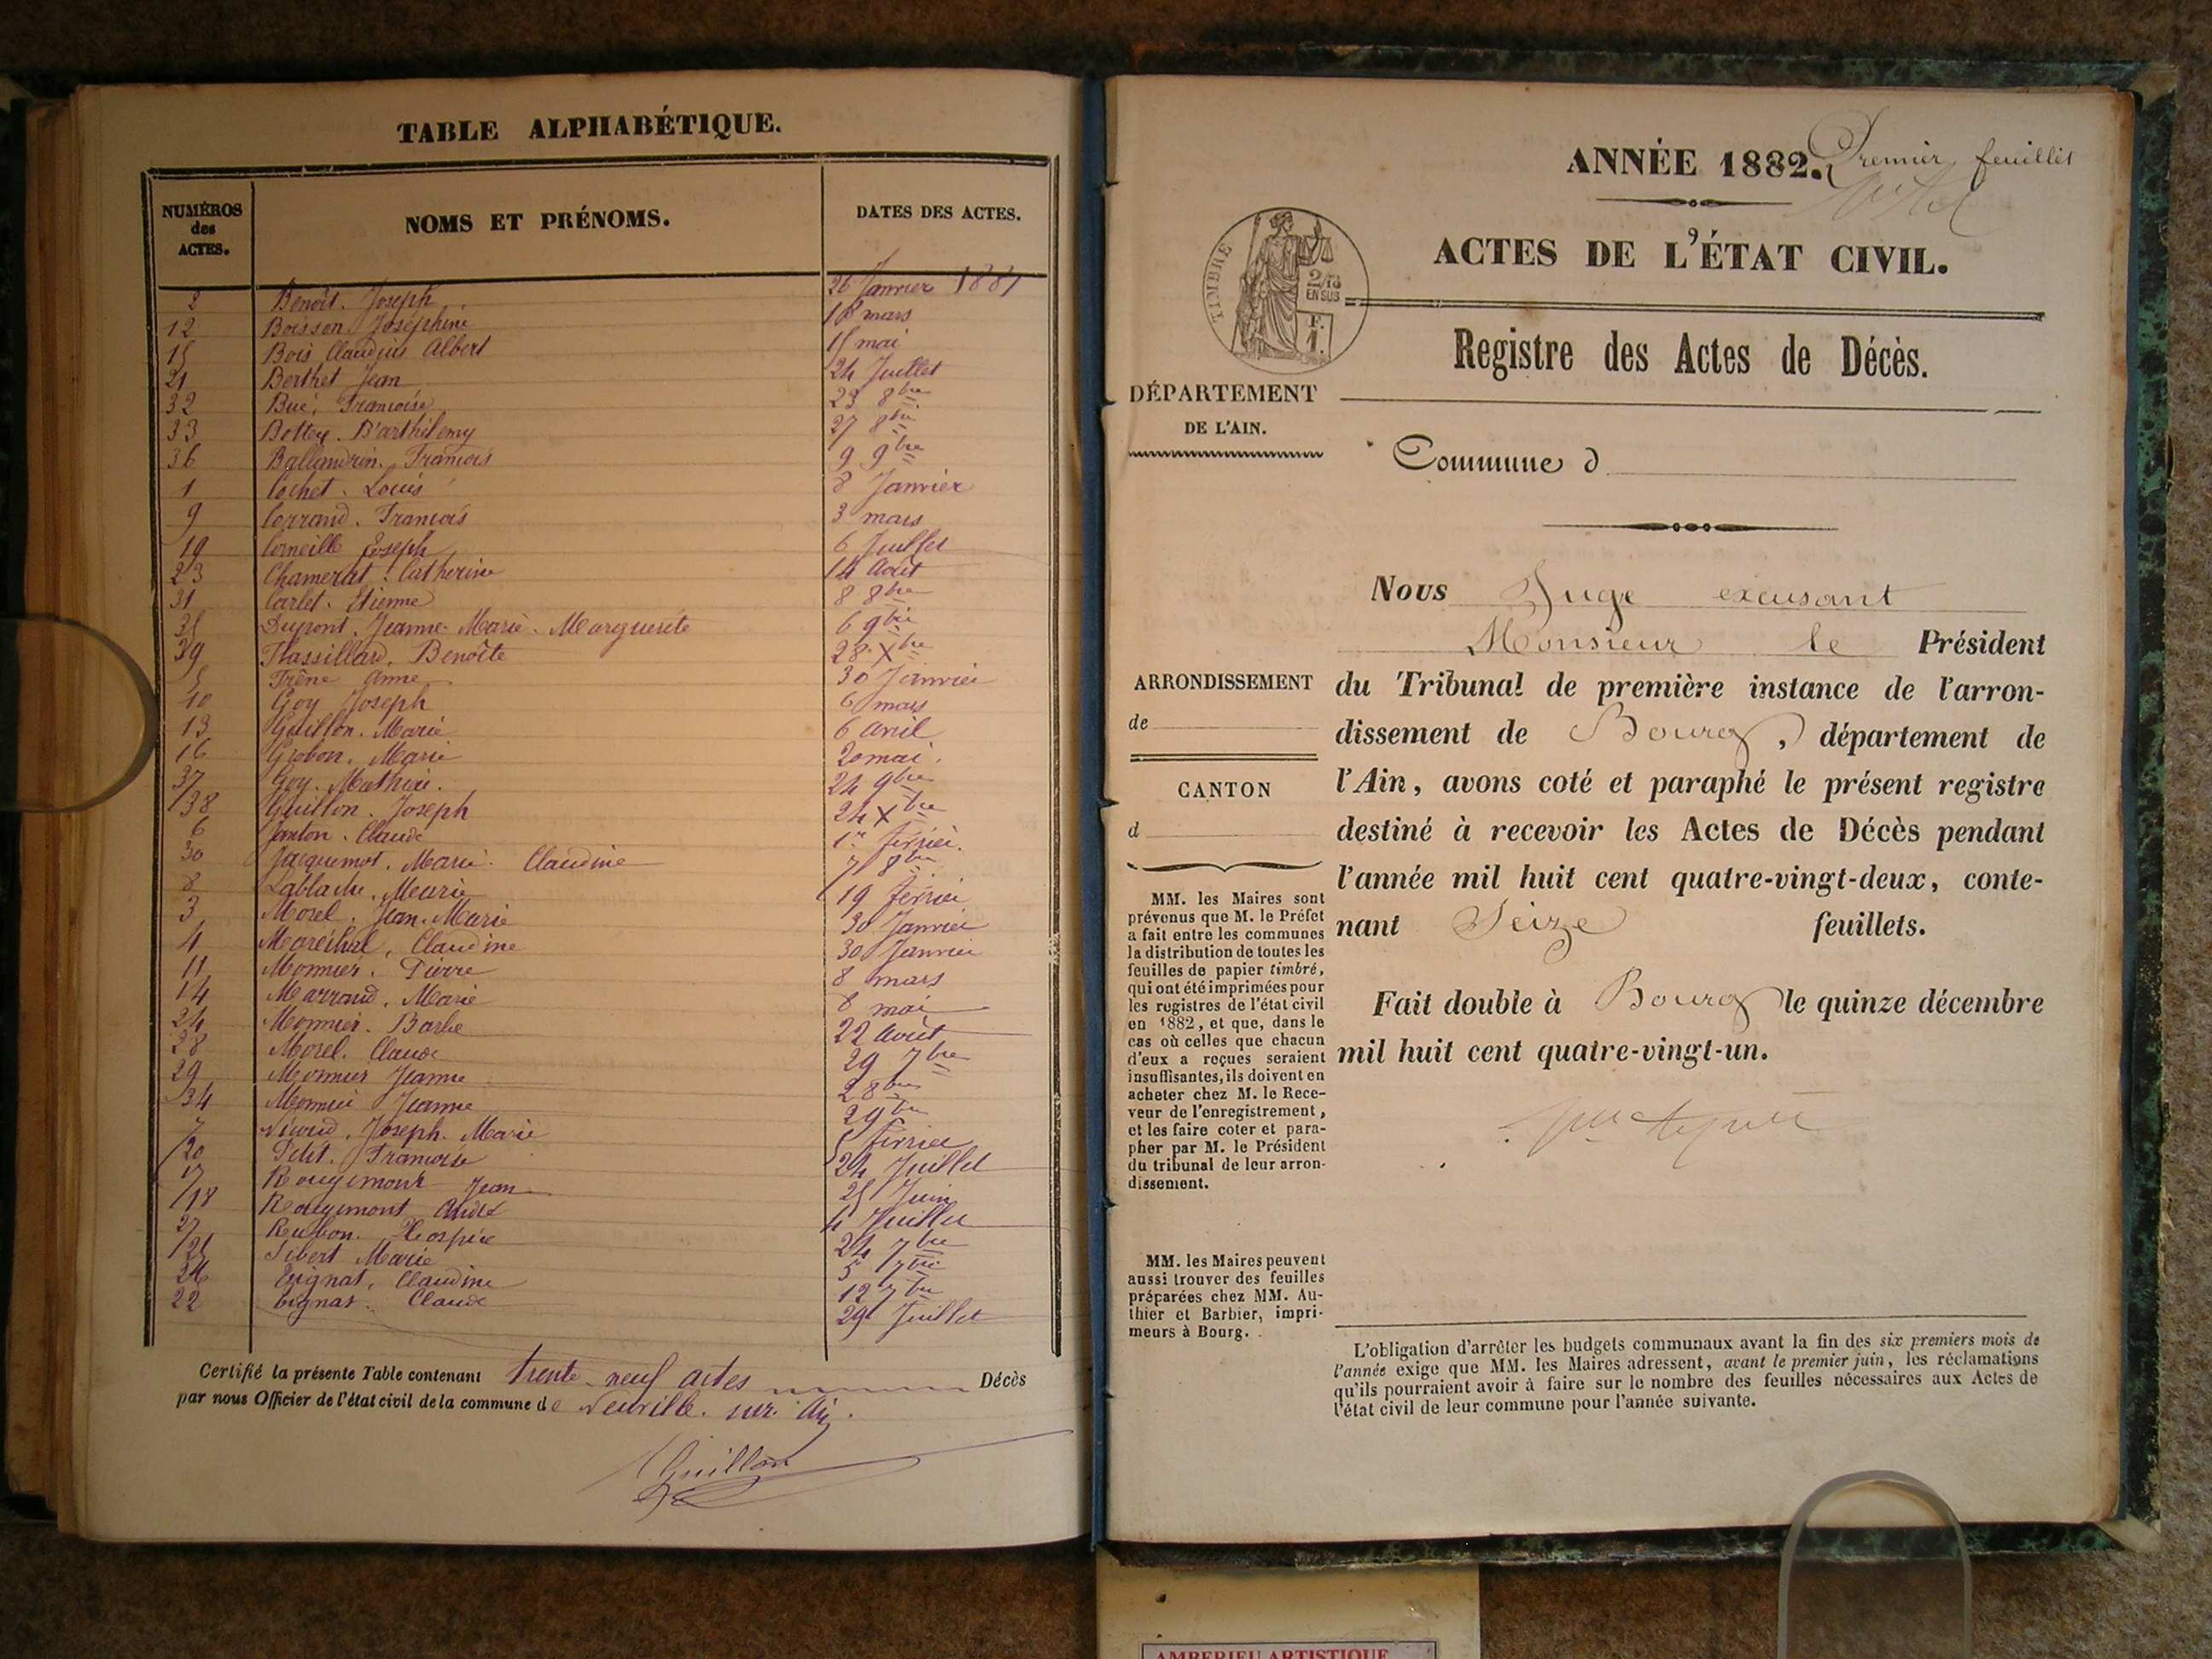 TABLE ALPHABÉTIQUE.
NUMÉROS des ACTES.
NOMS ET PRÉNOMS.
DATES DES ACTES.
2 Benoît. Joseph 26 Janvier 1881
12 Boisson. Joséphine 18 mars
15 Bois Claudius Albert 15 mai
21 Berthet Jean 24 Juillet
32 Bué, Françoise 23 8bre
33 Bottex. Barthélemy 27 8bre
36 Ballandrin. François 9 9bre
1 Cochet. Louis 8 Janvier
9 Corrand. François 3 mars
19 Corneille Joseph 6 Juillet
23 Chamerat. Catherine 14 Août
31 Carlet. Etienne 8 8bre
35 Dupont. Jeanne. Marie. Marguerite 6 9bre
39 Flassillard, Benoîte 28 Xbre
5 Frêne Anne 30 Janvier
10 Goy Joseph 6 mars
13 Guillon. Marie 6 avril
16 Grobon. Marie 20 mai.
37 Goy. Mathieu. 24 9bre
38 Guillon. Joseph 24 Xbre
6 Janton. Claude 1er Février.
30 Jacquemot. Marie. Claudine 7 8bre
8 Lablache. Marie 19 février
3 Morel. Jean. Marie 30 Janvier
4 Maréchal, Claudine 30 Janvier
11 Monnier. Pierre 8 mars
14 Marrand. Marie 8 mai
24 Monnier. Barbe 22 Août
28 Morel. Claude 29 7bre
29 Monnier Jeanne 2 8bre
34 Monnier Jeanne 2 9bre
7 Joseph. Marie 5 février
20 Petit. Françoise 24 Juillet
17 Rougemont Jean 25 Juin
18 Rougemont André 4 Juillet
27 Rubon. Hospice 24 7bre
25 Sibert Marie 5 7bre
26 Claudine 12 7bre
22 Claude 29 Juillet
Certifié la présente Table contenant trente-neuf actes Décès
par nous Officier de l'état civil de la commune de Neuville. sur. Ain.
Guillon
ANNÉE 1882.
Premier feuillet
ACTES DE L'ÉTAT CIVIL.
TIMBRE
2/10 EN SUS
F. 1.
Registre des Actes de Décès.
DÉPARTEMENT
DE L'AIN.
Commune d
Nous Juge excusant
Monsieur le Président
ARRONDISSEMENT
de
CANTON
d
du Tribunal de première instance de l'arron-
dissement de Bourg, département de
l'Ain, avons coté et paraphé le présent registre
destiné à recevoir les Actes de Décès pendant
l'année mil huit cent quatre-vingt-deux, conte-
nant Seize feuillets.
Fait double à Bourg le quinze décembre
mil huit cent quatre-vingt-un.
MM. les Maires sont
prévenus que M. le Préfet
a fait entre les communes
la distribution de toutes les
feuilles de papier timbré,
qui ont été imprimées pour
les registres de l'état civil
en 1882, et que, dans le
cas où celles que chacun
d'eux a reçues seraient
insuffisantes, ils doivent en
acheter chez M. le Rece-
veur de l'enregistrement,
et les faire coter et para-
pher par M. le Président
du tribunal de leur arron-
dissement.
MM. les Maires peuvent
aussi trouver des feuilles
préparées chez MM. Au-
thier et Barbier, impri-
meurs à Bourg.
L'obligation d'arrêter les budgets communaux avant la fin des six premiers mois de
l'année exige que MM. les Maires adressent, avant le premier juin, les réclamations
qu'ils pourraient avoir à faire sur le nombre des feuilles nécessaires aux Actes de
l'état civil de leur commune pour l'année suivante.
AMBERIEU ARTISTIQUE